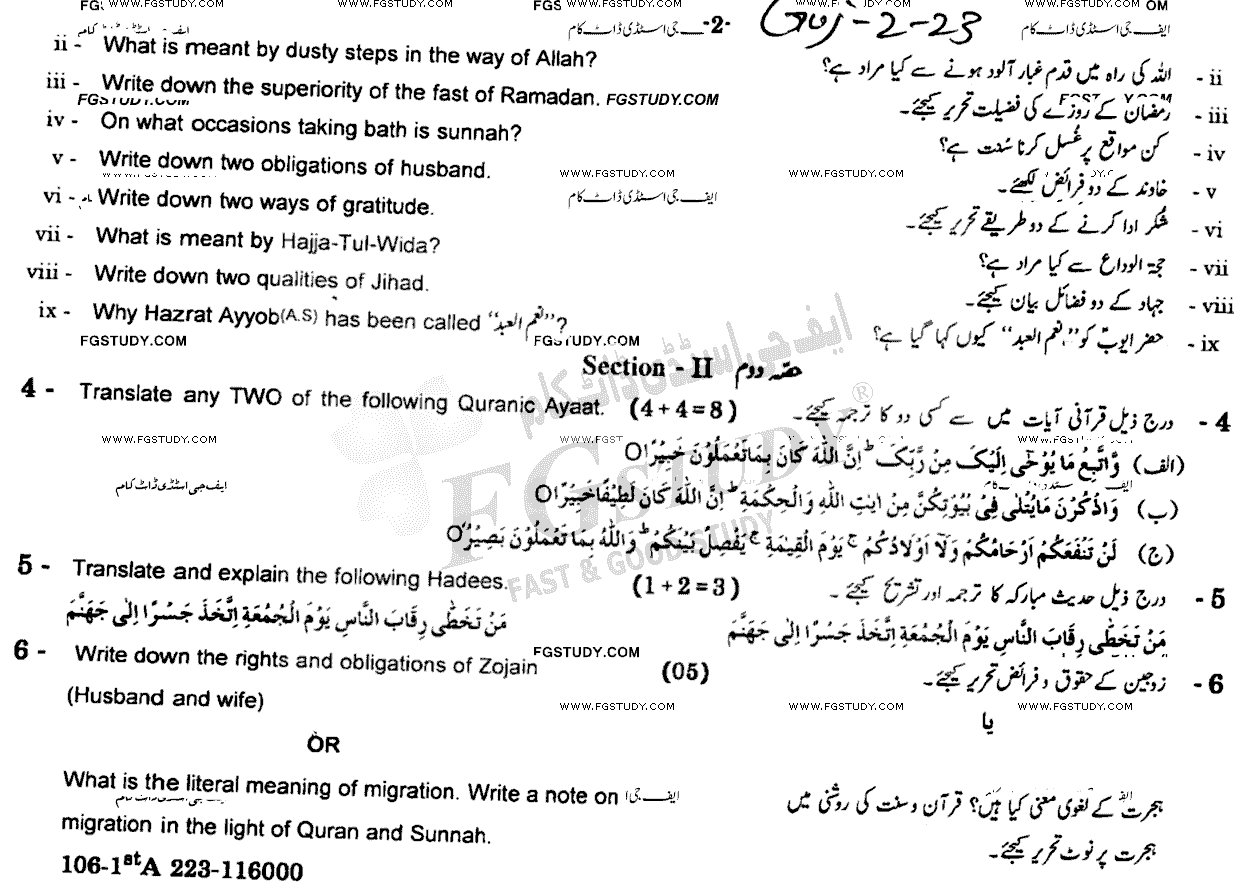 -2- Guj-2-23
ii - What is meant by dusty steps in the way of Allah?
ii - اللہ کی راہ میں قدم غبار آلود ہونے سے کیا مراد ہے؟
iii - Write down the superiority of the fast of Ramadan. FGSTUDY.COM
iii - رمضان کے روزے کی فضیلت تحریر کیجئے۔
iv - On what occasions taking bath is sunnah?
iv - کن مواقع پر غُسل کرنا سُنت ہے؟
v - Write down two obligations of husband.
v - خاوند کے دو فرائض لکھئے۔
WWW.FGSTUDY.COM WWW.FGSTUDY.COM
vi - Write down two ways of gratitude.
ایف جی اسٹڈی ڈاٹ کام
vi - شُکر ادا کرنے کے دو طریقے تحریر کیجئے۔
vii - What is meant by Hajja-Tul-Wida?
vii - حجۃ الوداع سے کیا مراد ہے؟
viii - Write down two qualities of Jihad.
viii - جہاد کے دو فضائل بیان کیجئے۔
ix - Why Hazrat Ayyob(A.S) has been called "نعم العبد"?
ix - حضر ایوبؑ کو "نعم العبد" کیوں کہا گیا ہے؟
FGSTUDY.COM FGSTUDY.COM
Section - II حصّہ دوم
4 - Translate any TWO of the following Quranic Ayaat. (4+4=8)
4 - درج ذیل قرآنی آیات میں سے کسی دو کا ترجمہ کیجئے۔
WWW.FGSTUDY.COM
(الف) وَّاتَّبِعْ مَا يُوْحٰٓى اِلَيْكَ مِنْ رَّبِّكَ ؕ اِنَّ اللّٰهَ كَانَ بِمَا تَعْمَلُوْنَ خَبِيْرًا○
ایف جی اسٹڈی ڈاٹ کام
(ب) وَاذْكُرْنَ مَا يُتْلٰى فِيْ بُيُوْتِكُنَّ مِنْ اٰيٰتِ اللّٰهِ وَالْحِكْمَةِ ؕ اِنَّ اللّٰهَ كَانَ لَطِيْفًا خَبِيْرًا○
(ج) لَنْ تَنْفَعَكُمْ اَرْحَامُكُمْ وَلَآ اَوْلَادُكُمْ ۚ يَوْمَ الْقِيٰمَةِ ۚ يَفْصِلُ بَيْنَكُمْ ؕ وَاللّٰهُ بِمَا تَعْمَلُوْنَ بَصِيْرٌ○
ایف جی اسٹڈی ڈاٹ کام
FGSTUDY ®
FAST & GOOD STUDY
5 - Translate and explain the following Hadees. (1+2=3)
5 - درج ذیل حدیث مبارکہ کا ترجمہ اور تشریح کیجئے۔
مَنْ تَخَطّٰى رِقَابَ النَّاسِ يَوْمَ الْجُمُعَةِ اِتَّخَذَ جَسْرًا اِلٰى جَهَنَّمَ
مَنْ تَخَطّٰى رِقَابَ النَّاسِ يَوْمَ الْجُمُعَةِ اِتَّخَذَ جَسْرًا اِلٰى جَهَنَّمَ
6 - Write down the rights and obligations of Zojain FGSTUDY.COM (05)
6 - زوجین کے حقوق و فرائض تحریر کیجئے۔
(Husband and wife)
WWW.FGSTUDY.COM WWW.FGSTUDY.COM WWW.FGSTUDY.COM
یا
OR
What is the literal meaning of migration. Write a note on
ہجرت کے لغوی معنی کیا ہیں؟ قرآن و سنت کی روشنی میں
migration in the light of Quran and Sunnah.
ہجرت پر نوٹ تحریر کیجئے۔
106-1stA 223-116000